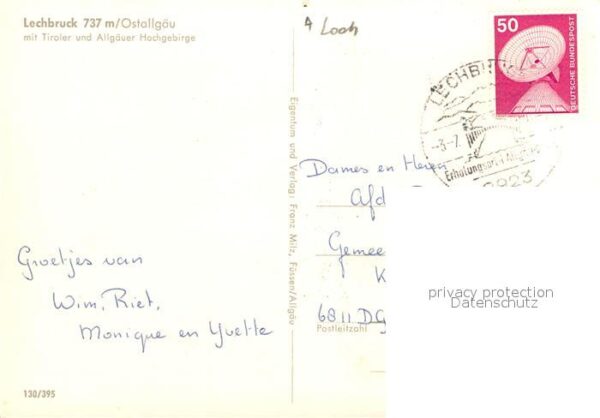 Lechbruck 737 m/Ostallgäu
mit Tiroler und Allgäuer Hochgebirge
Groetjes van
Wim, Riet,
Monique en Yvette
130/395
Eigentum und Verlag: Franz Milz, Füssen/Allgäu
4 Loch
50
DEUTSCHE BUNDESPOST
LECHBRUCK
-3.-7.
Erholungsort
8923
Dames en Heren
Afd
Gemee
K
6811 DG
Postleitzahl
privacy protection
Datenschutz